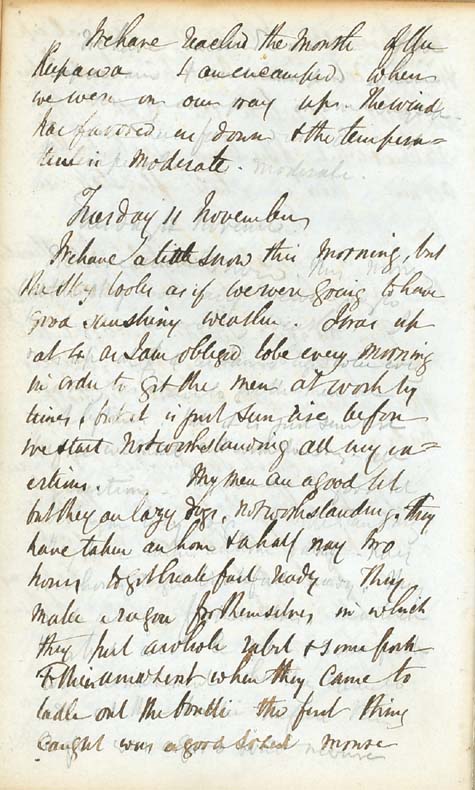 We have reached the Month of the
Kepawa & are encamped where
we were on our way up. The wind
has favored us down & the tempera=
ture is moderate.
Tuesday 11 November
We have a little snow this morning, but
the sky looks as if we were going to have
good sunshiny weather. I was up
at 4 as I am obliged to be every morning
in order to get the men at work by
times, but it is just sun rise before
we start Notwithstanding all my in=
ertions. My men are a good set
but they are lazy dogs, notwithstanding, they
have taken an hour & a half nay two
hours to get breakfast ready They
make a ragou for themselves in which
they put a whole rabit & some pork
& then when they came to
ladle out the bouilli the first thing
caught was a good sized mouse